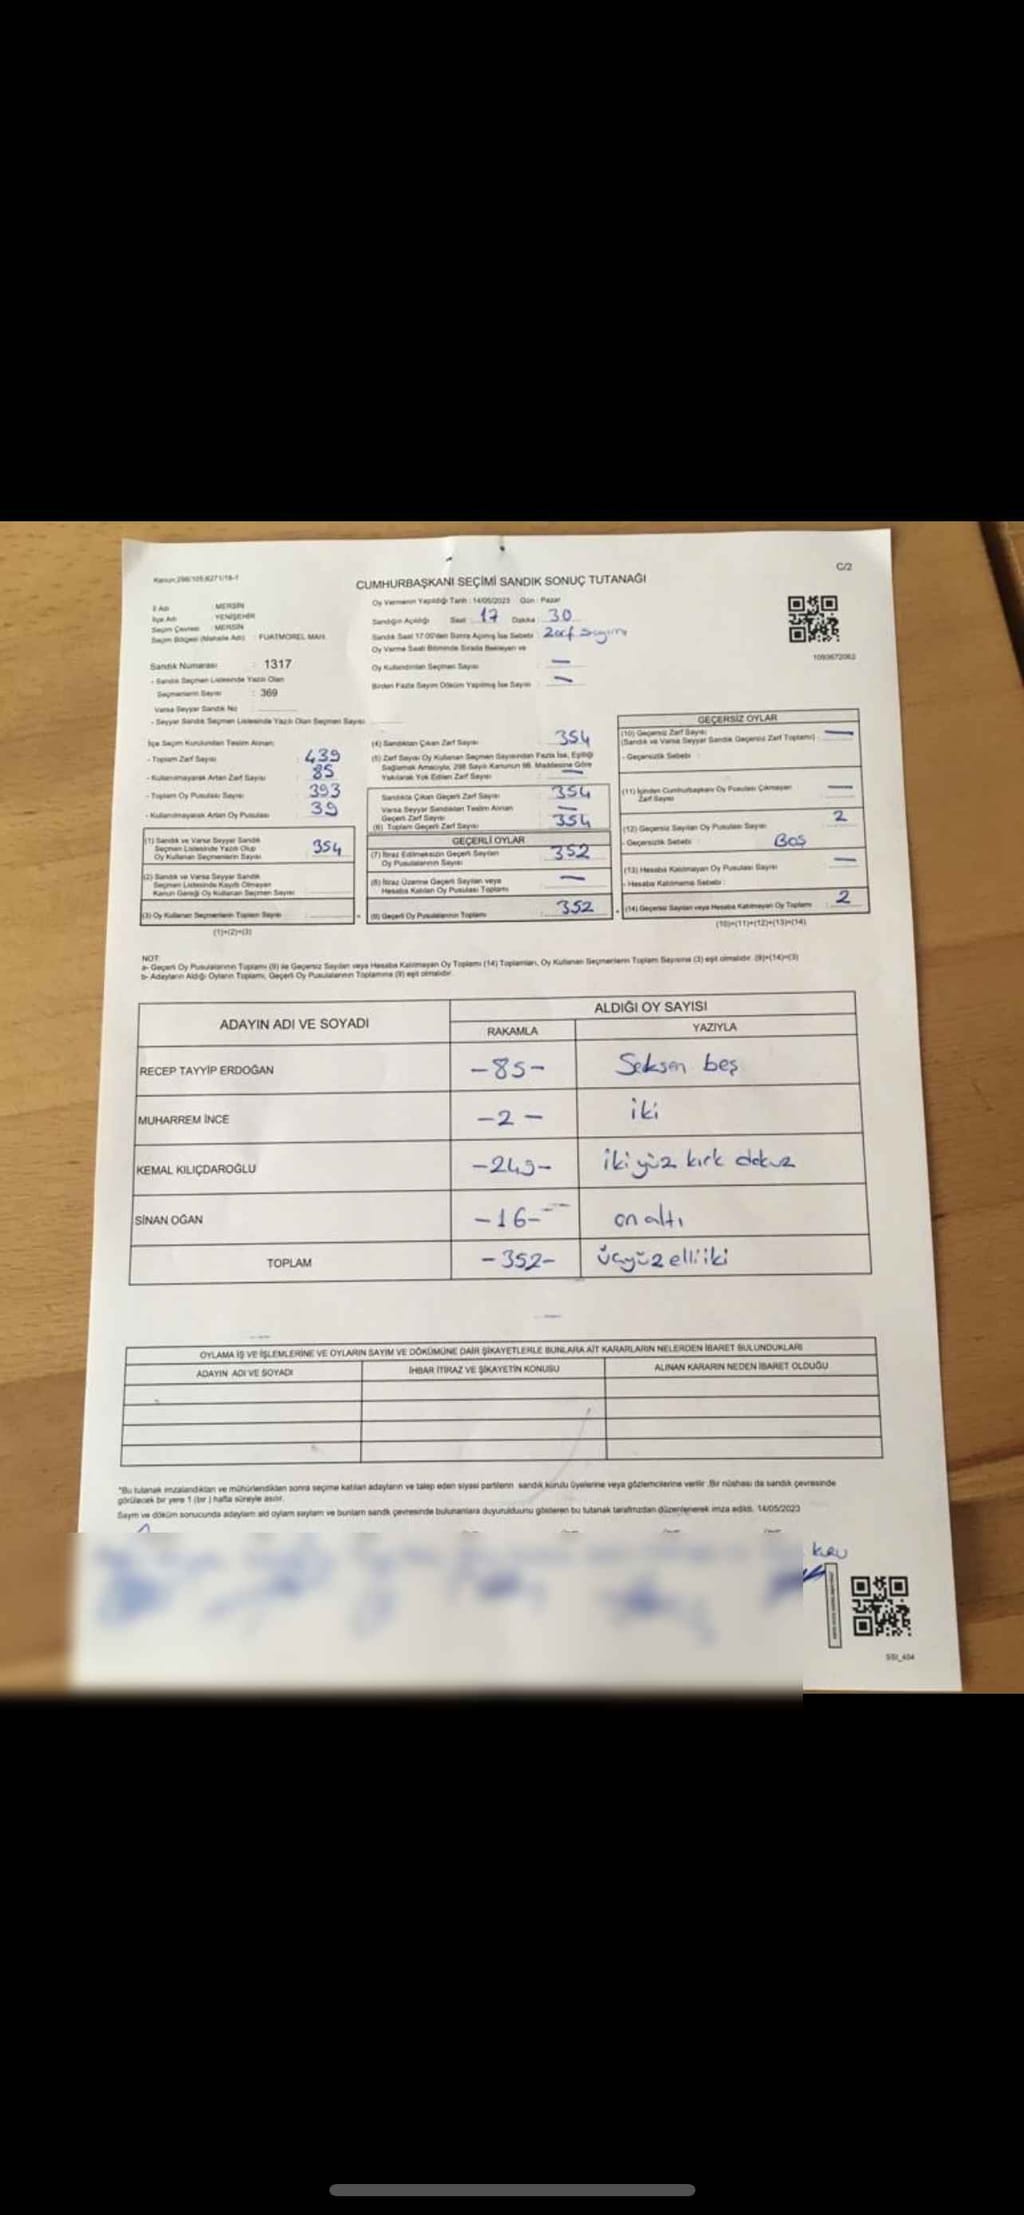 Kanun:298/105,6271/18-1
C/2
CUMHURBAŞKANI SEÇİMİ SANDIK SONUÇ TUTANAĞI
İl Adı : MERSİN
İlçe Adı : YENİŞEHİR
Seçim Çevresi : MERSİN
Seçim Bölgesi (Mahalle Adı) : FUATMOREL MAH.
Sandık Numarası : 1317
- Sandık Seçmen Listesinde Yazılı Olan
Seçmenlerin Sayısı : 369
Varsa Seyyar Sandık No :
- Seyyar Sandık Seçmen Listesinde Yazılı Olan Seçmen Sayısı
Oy Vermenin Yapıldığı Tarih : 14/05/2023 Gün : Pazar
Sandığın Açıldığı Saat : 17 Dakika : 30
Sandık Saat 17.00'den Sonra Açılmış İse Sebebi : Zarf Sayımı
Oy Verme Saati Bitiminde Sırada Bekleyen ve
Oy Kullandırılan Seçmen Sayısı : —
Birden Fazla Sayım Döküm Yapılmış İse Sayısı : —
1093672062
İlçe Seçim Kurulundan Teslim Alınan;
- Toplam Zarf Sayısı : 439
- Kullanılmayarak Artan Zarf Sayısı : 85
- Toplam Oy Pusulası Sayısı : 393
- Kullanılmayarak Artan Oy Pusulası : 39
(1) Sandık ve Varsa Seyyar Sandık
Seçmen Listesinde Yazılı Olup
Oy Kullanan Seçmenlerin Sayısı 354
(2) Sandık ve Varsa Seyyar Sandık
Seçmen Listesinde Kayıtlı Olmayan
Kanun Gereği Oy Kullanan Seçmen Sayısı
(3) Oy Kullanan Seçmenlerin Toplam Sayısı
(1)+(2)=(3)
(4) Sandıktan Çıkan Zarf Sayısı : 354
(5) Zarf Sayısı Oy Kullanan Seçmen Sayısından Fazla İse, Eşitliği
Sağlamak Amacıyla, 298 Sayılı Kanunun 98. Maddesine Göre
Yakılarak Yok Edilen Zarf Sayısı : —
Sandıkta Çıkan Geçerli Zarf Sayısı : 354
Varsa Seyyar Sandıktan Teslim Alınan
Geçerli Zarf Sayısı : —
(6) Toplam Geçerli Zarf Sayısı : 354
GEÇERLİ OYLAR
(7) İtiraz Edilmeksizin Geçerli Sayılan
Oy Pusulalarının Sayısı : 352
(8) İtiraz Üzerine Geçerli Sayılan veya
Hesaba Katılan Oy Pusulası Toplamı : —
(9) Geçerli Oy Pusulalarının Toplamı : 352
GEÇERSİZ OYLAR
(10) Geçersiz Zarf Sayısı
(Sandık ve Varsa Seyyar Sandık Geçersiz Zarf Toplamı) : —
- Geçersizlik Sebebi :
(11) İçinden Cumhurbaşkanı Oy Pusulası Çıkmayan
Zarf Sayısı : —
(12) Geçersiz Sayılan Oy Pusulası Sayısı : 2
- Geçersizlik Sebebi : Boş
(13) Hesaba Katılmayan Oy Pusulası Sayısı : —
- Hesaba Katılmama Sebebi :
(14) Geçersiz Sayılan veya Hesaba Katılmayan Oy Toplamı : 2
(10)+(11)+(12)+(13)=(14)
NOT:
a- Geçerli Oy Pusulalarının Toplamı (9) ile Geçersiz Sayılan veya Hesaba Katılmayan Oy Toplamı (14) Toplamları, Oy Kullanan Seçmenlerin Toplam Sayısına (3) eşit olmalıdır. (9)+(14)=(3)
b- Adayların Aldığı Oyların Toplamı, Geçerli Oy Pusulalarının Toplamına (9) eşit olmalıdır.
ADAYIN ADI VE SOYADI
ALDIĞI OY SAYISI
RAKAMLA YAZIYLA
RECEP TAYYİP ERDOĞAN -85- Seksen beş
MUHARREM İNCE -2- iki
KEMAL KILIÇDAROĞLU -249- ikiyüz kırk dokuz
SİNAN OĞAN -16- on altı
TOPLAM -352- üçyüz elli iki
OYLAMA İŞ VE İŞLEMLERİNE VE OYLARIN SAYIM VE DÖKÜMÜNE DAİR ŞİKAYETLERLE BUNLARA AİT KARARLARIN NELERDEN İBARET BULUNDUKLARI
ADAYIN ADI VE SOYADI İHBAR İTİRAZ VE ŞİKAYETİN KONUSU ALINAN KARARIN NEDEN İBARET OLDUĞU
"Bu tutanak imzalandıktan ve mühürlendikten sonra seçime katılan adayların ve talep eden siyasi partilerin sandık kurulu üyelerine veya gözlemcilerine verilir .Bir nüshası da sandık çevresinde
görülecek bir yere 1 (bir ) hafta süreyle asılır.
Sayım ve döküm sonucunda adayların aldığı oyların sayılarını ve bunların sandık çevresinde bulunanlara duyurulduğunu gösteren bu tutanak tarafımızdan düzenlenerek imza edildi. 14/05/2023
SSI_404